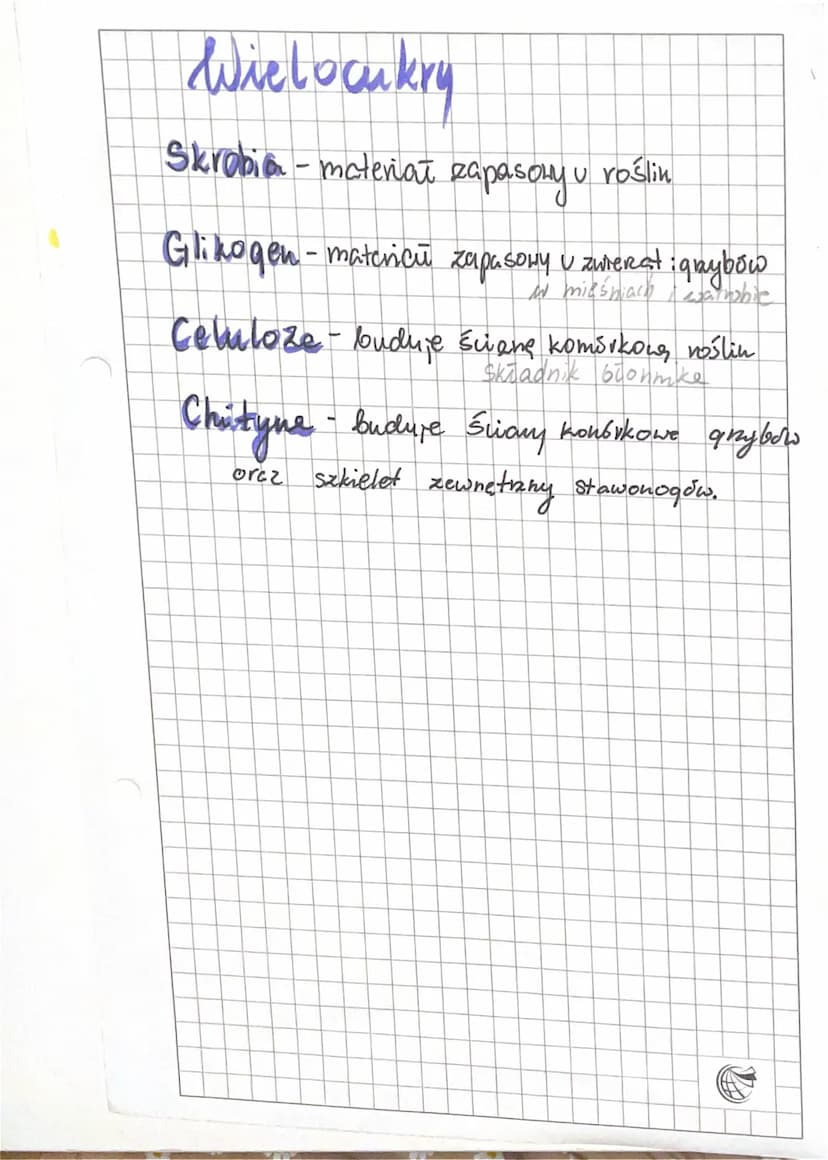 Wielocukry
Skrobia - materiał zapasowy u roślin
Glikogen - materiał zapasowy u zwierząt i grzybów
w mięśniach i wątrobie
Celuloza - buduje ścianę komórkową roślin
składnik błonnika
Chityna - buduje ściany komórkowe grzybów
oraz szkielet zewnętrzny stawonogów.